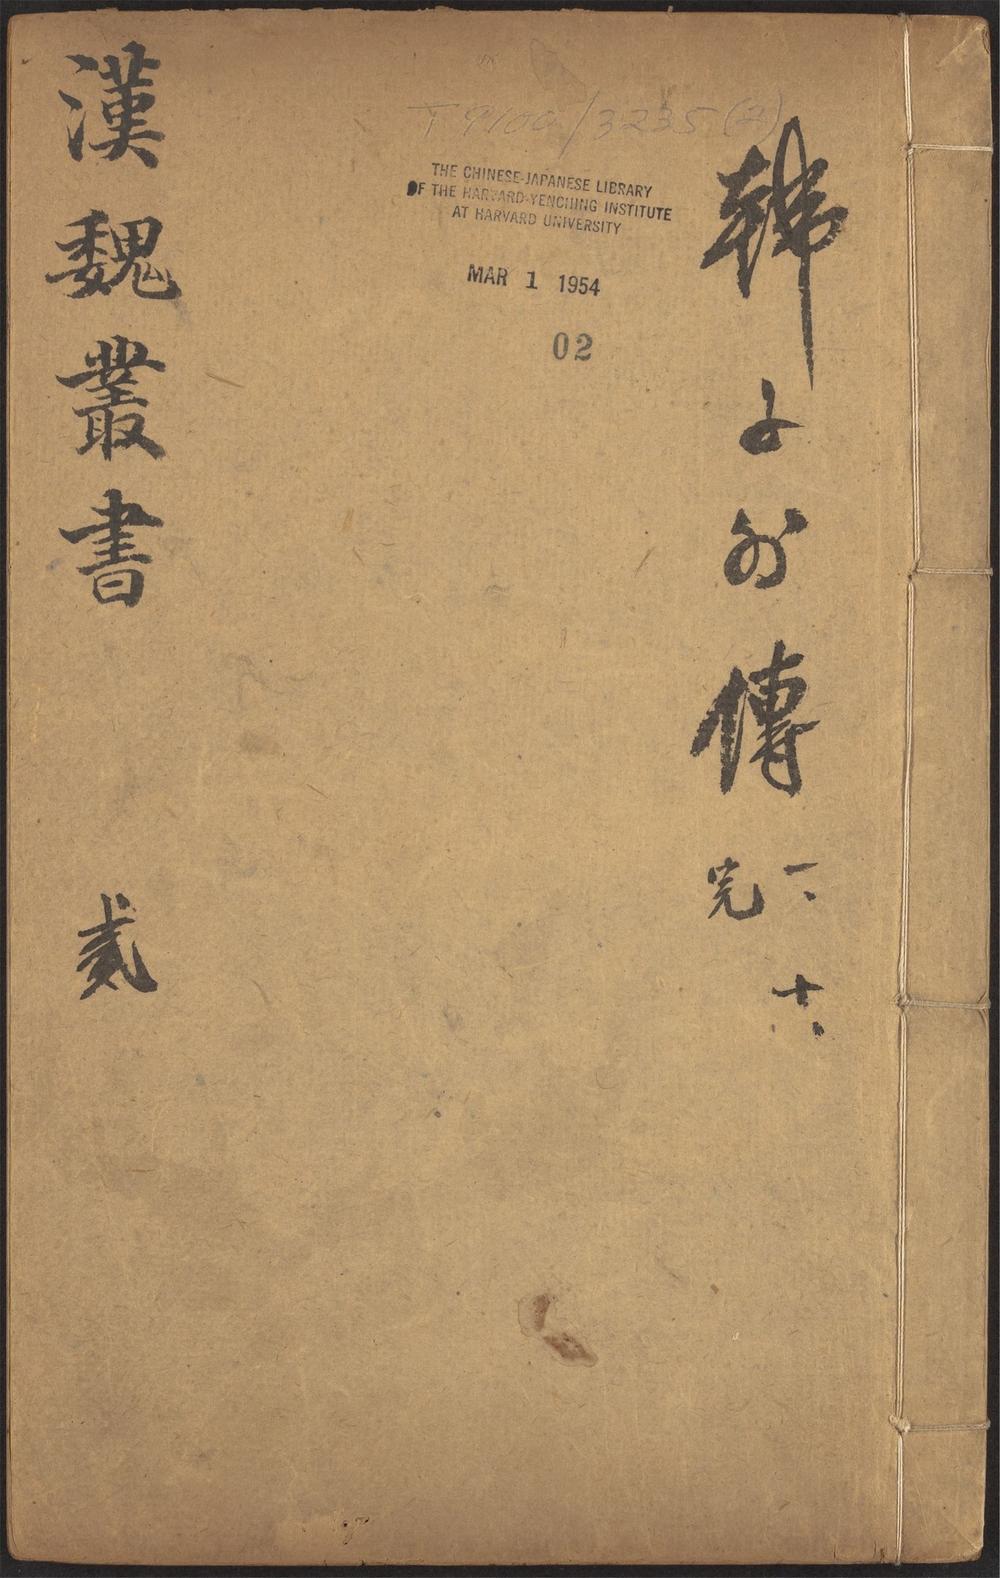 T 9100/3235(2)
THE CHINESE-JAPANESE LIBRARY
OF THE HARVARD-YENCHING INSTITUTE
AT HARVARD UNIVERSITY
MAR 1 1954
02
韓子外傳
一
十
完
漢魏叢書 貳